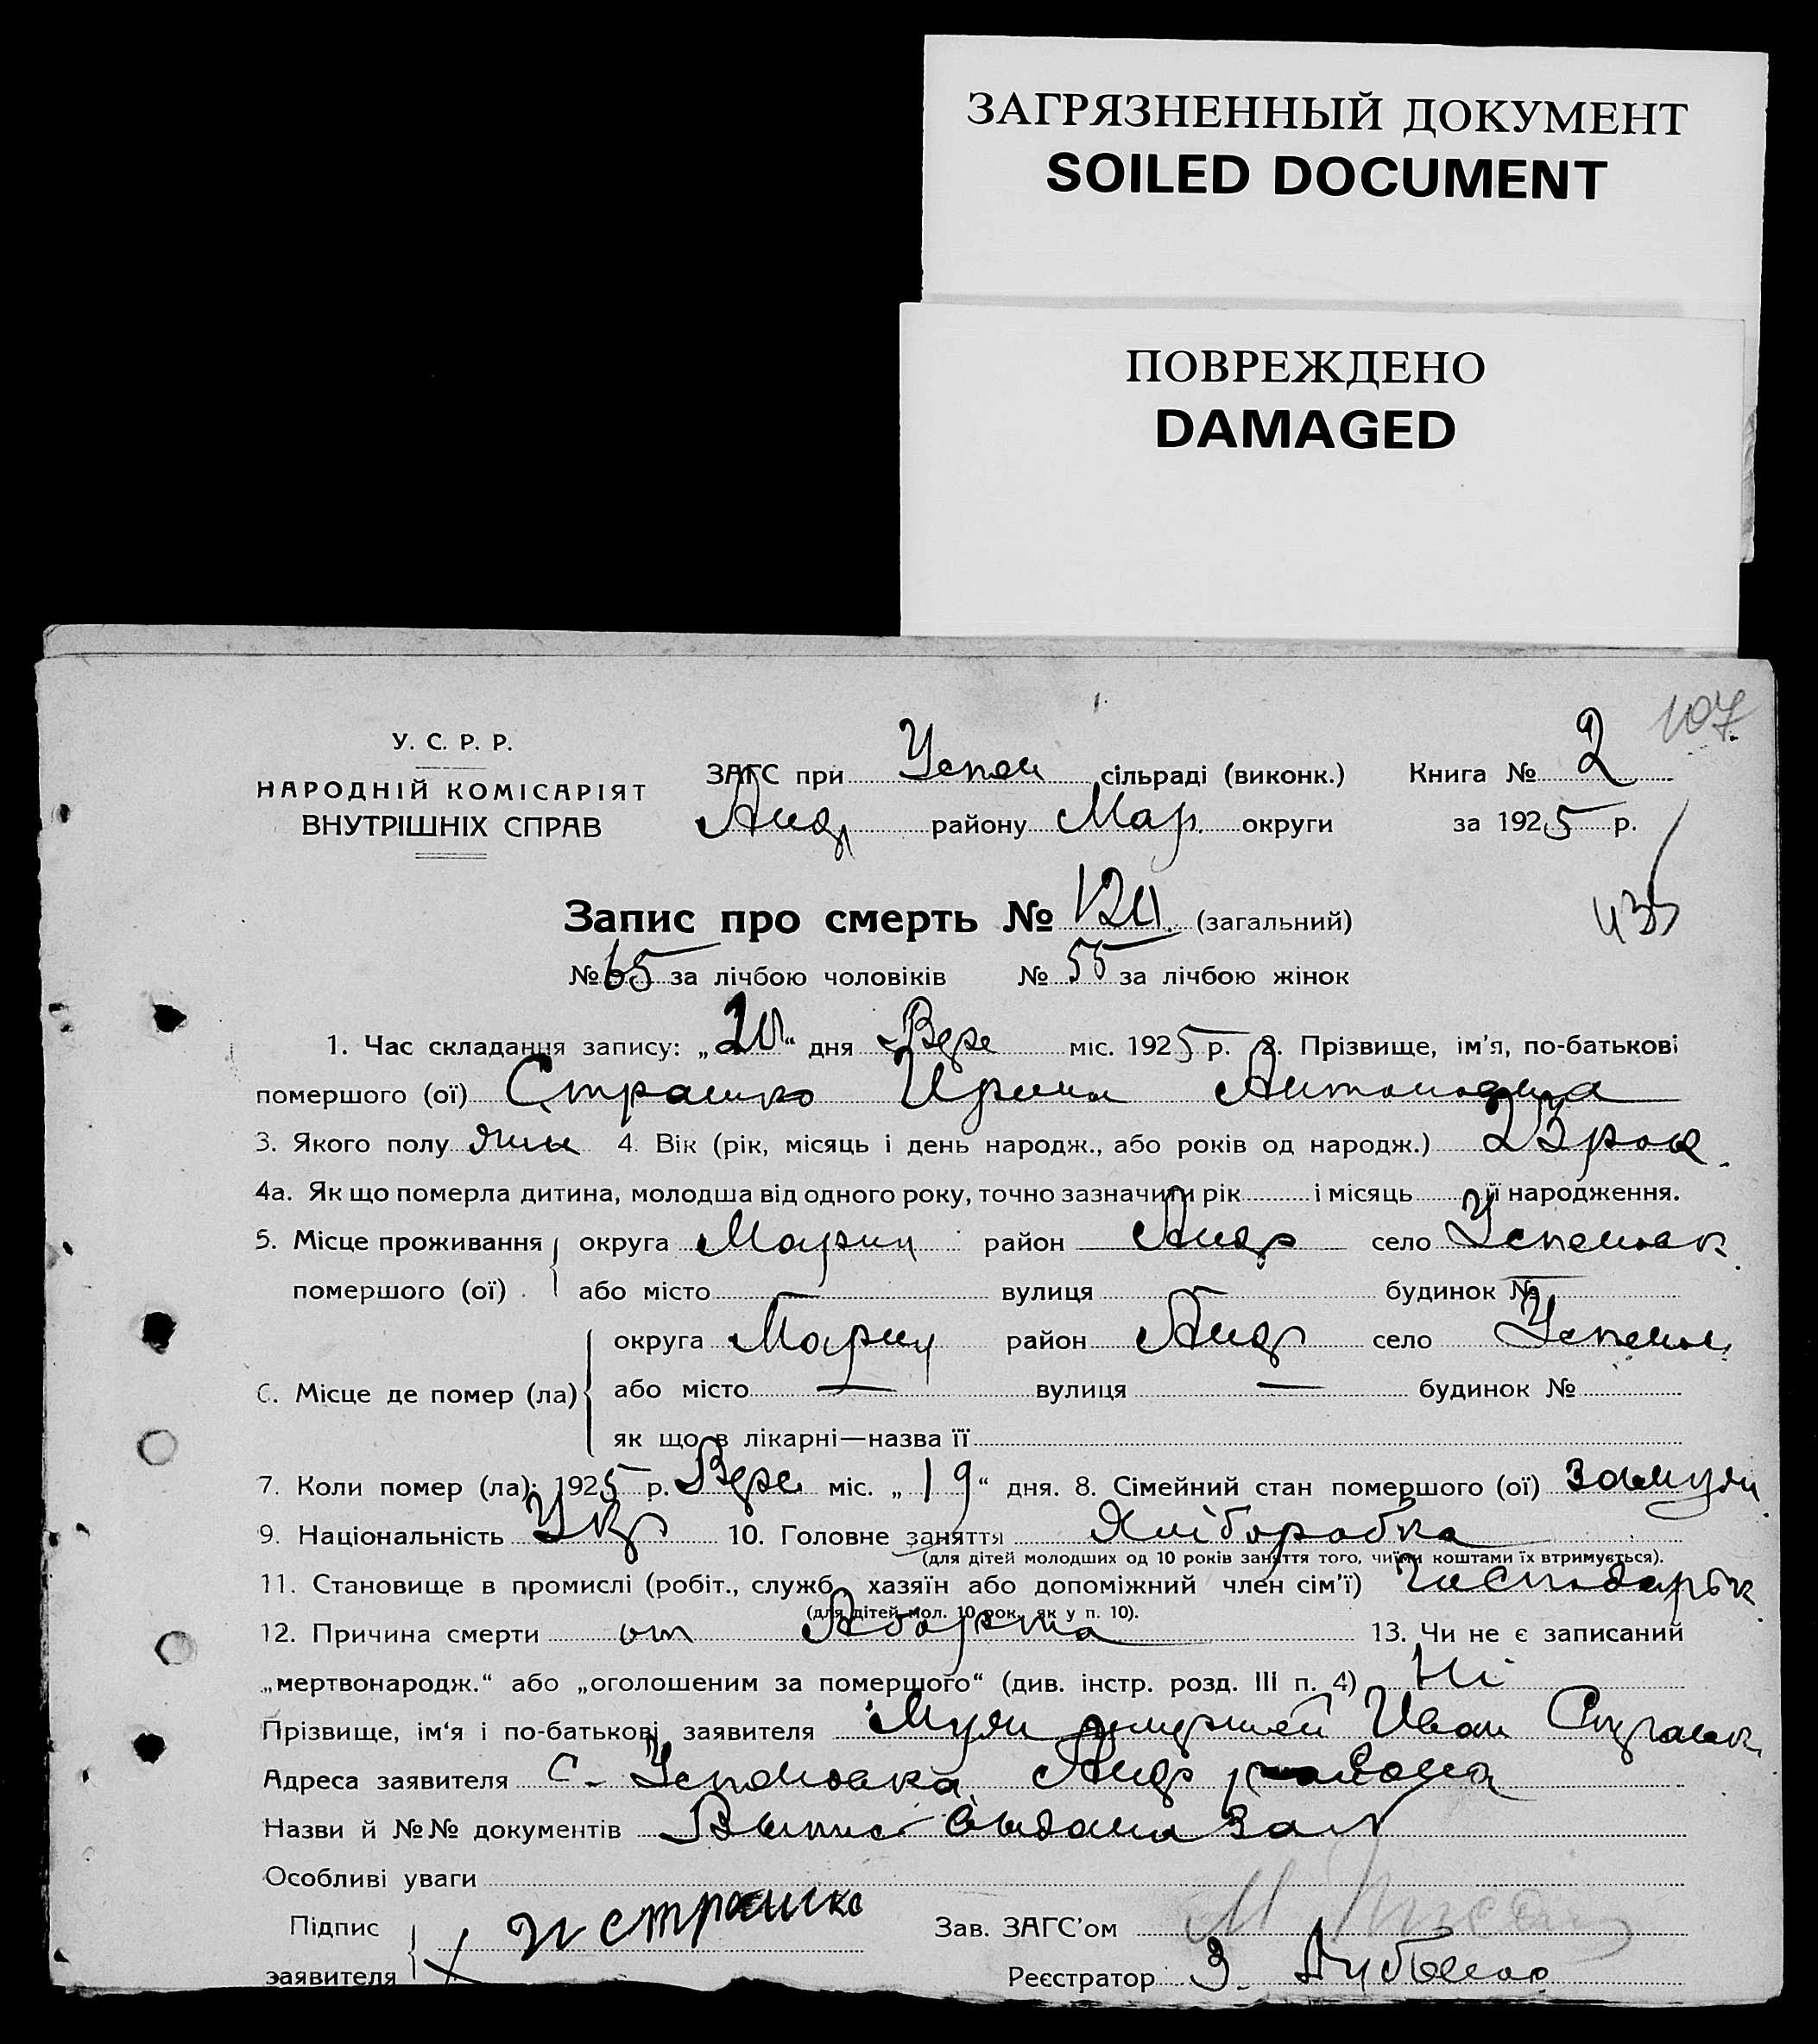 ЗАГРЯЗНЕННЫЙ ДОКУМЕНТ
SOILED DOCUMENT
ПОВРЕЖДЕНО
DAMAGED
107
У. С. Р. Р.
НАРОДНІЙ КОМІСАРІЯТ
ВНУТРІШНІХ СПРАВ
ЗАГС при Успен сільраді (виконк.) Книга № 2
Андр району Мар. округи за 1925 р.
435
Запис про смерть № 120. (загальний)
№ 65 за лічбою чоловіків № 55 за лічбою жінок
1. Час складання запису: „20“ дня Вере міс. 1925 р. 2. Прізвище, ім'я, по-батькові
помершого (ої) Страшко Ирина Антоновна
3. Якого полу жин 4. Вік (рік, місяць і день народж., або років од народж.) 23 рок.
4а. Як що померла дитина, молодша від одного року, точно зазначити рік і місяць її народження.
5. Місце проживання округа Мариу район Андр село Успеновк
помершого (ої) або місто вулиця будинок №
округа Мариу район Андр село Успенов
6. Місце де помер (ла) або місто — вулиця — будинок №
як що в лікарні—назва її
7. Коли помер (ла): 1925 р. Вере міс. „19“ дня. 8. Сімейний стан помершого (ої) замужн
9. Національність Укр 10. Головне заняття Хліборобка
(для дітей молодших од 10 років заняття того, чиїми коштами їх втримується).
11. Становище в промислі (робіт., служб., хазяїн або допоміжний член сім'ї) Господарьк
(для дітей мол. 10 рок., як у п. 10).
12. Причина смерти от Аборта 13. Чи не є записаний
„мертвонародж.“ або „оголошеним за помершого“ (див. інстр. розд. III п. 4) Ні
Прізвище, ім'я і по-батькові заявителя Муж умершей Иван Страшк
Адреса заявителя с. Успеновка Андр района
Назви й №№ документів Выпис выдана за №
Особливі уваги
Підпис заявителя И Страшко Зав. ЗАГС'ом
Реєстратор З.